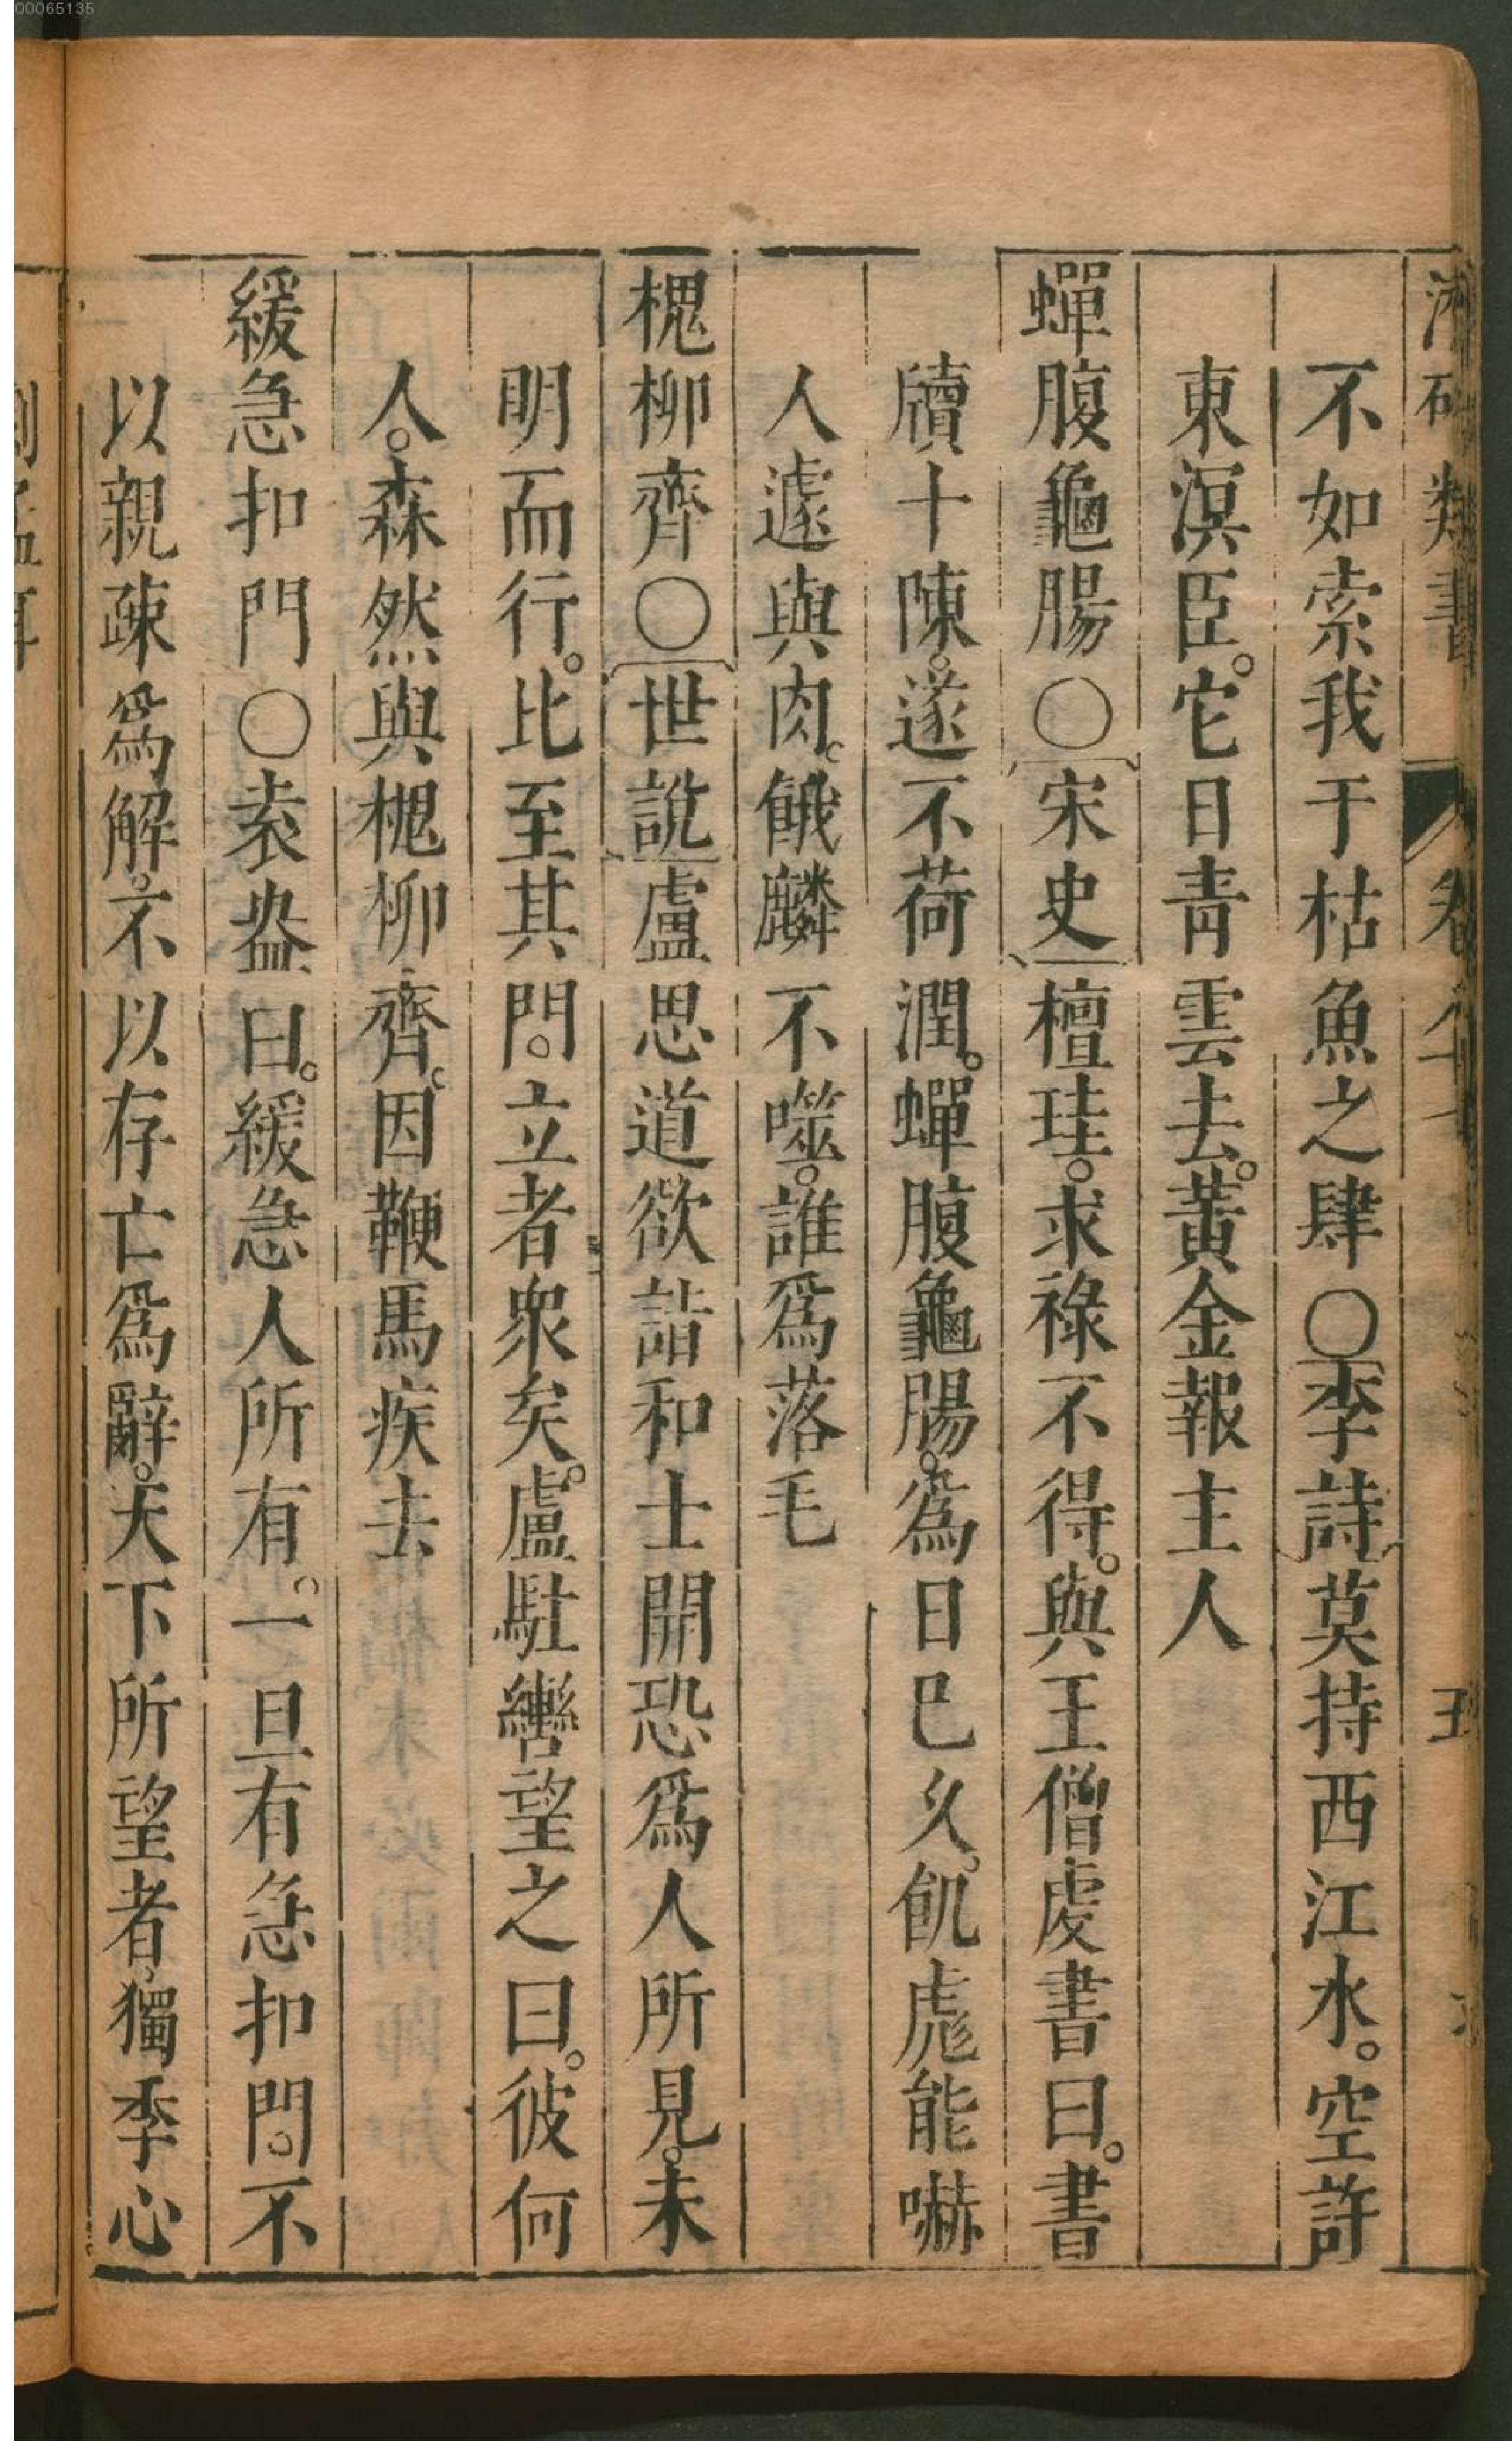 00065135
類書 卷 五
不如索我于枯魚之肆〇李詩莫持西江水。空許
東溟臣。它日青雲去。黃金報主人
蟬腹龜腸〇宋史檀珪。求祿不得。與王僧虔書曰。書
牘十陳。遂不荷潤。蟬腹龜腸。為日巳久。飢虎能嚇
人遽與肉。餓麟不噬。誰爲落毛
槐柳齊〇世說盧思道欲詣和士開恐爲人所見。未
明而行。比至其門。立者衆矣。盧駐轡望之曰。彼何
人。森然與槐柳齊。因鞭馬疾去
緩急扣門〇袁盎曰。緩急人所有。一旦有急扣門。不
以親疎爲解。不以存亡爲辭。天下所望者。獨季心